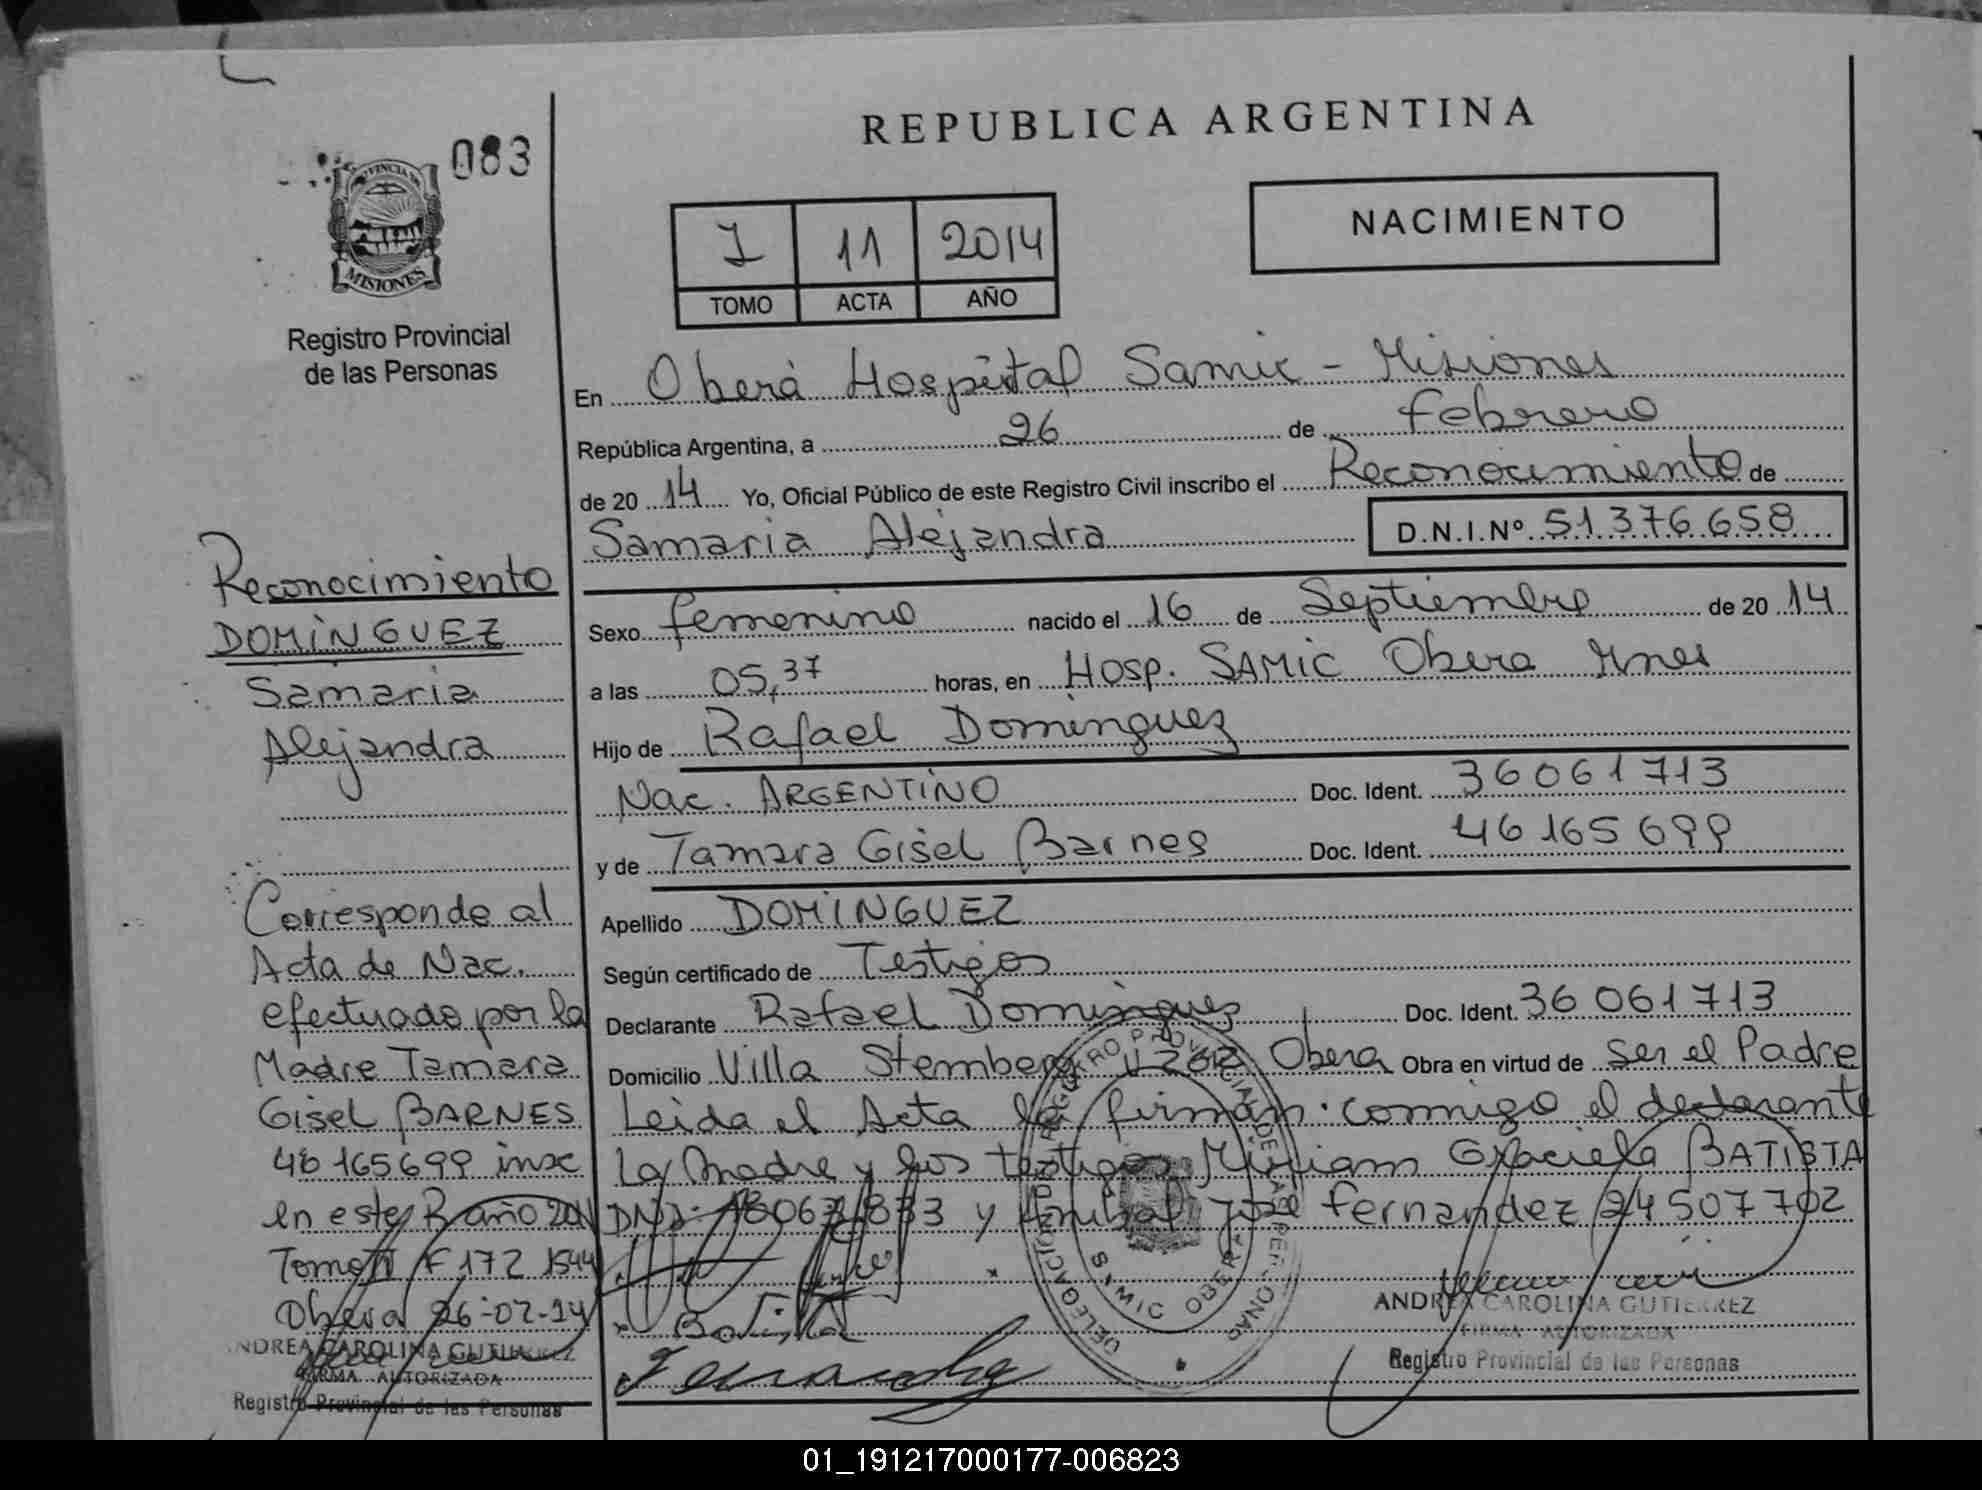 083
PROVINCIA DE
MISIONES
Registro Provincial
de las Personas
REPUBLICA ARGENTINA
I 11 2014
TOMO ACTA AÑO
NACIMIENTO
En Oberá Hospital Samic - Misiones
República Argentina, a 26 de febrero
de 2014 Yo, Oficial Público de este Registro Civil inscribo el Reconocimiento de
Samaria Alejandra D.N.I.Nº 51.376.658
Sexo femenino nacido el 16 de Septiembre de 2014
a las 05,37 horas, en Hosp. SAMIC Obera Mnes
Hijo de Rafael Dominguez
Nac. ARGENTINO Doc. Ident. 36061713
y de Tamara Gisel Barnes Doc. Ident. 46165699
Apellido DOMINGUEZ
Según certificado de Testigos
Declarante Rafael Dominguez Doc. Ident. 36 061713
Domicilio Villa Stemberg Obera Obra en virtud de ser el Padre
Leida el Acta la firman conmigo el declarante
La Madre y los testigos Miriam Graciela BATISTA
DNI y Anibal Jose Fernandez 24507702
Batista
Fernandez
ANDREA CAROLINA GUTIERREZ
FIRMA AUTORIZADA
Registro Provincial de las Personas
Reconocimiento
DOMINGUEZ
Samaria
Alejandra
Corresponde al
Acta de Nac.
efectuado por la
Madre Tamara
Gisel BARNES
46165699 insc
en este R año
Tomo F 172 1544
Obera 26-02-14
ANDREA CAROLINA GUTIERREZ
FIRMA AUTORIZADA
Registro Provincial de las Personas
REGISTRO PROVINCIAL DE LAS PERSONAS
DELEGACION
SAMIC OBERA
01_191217000177-006823